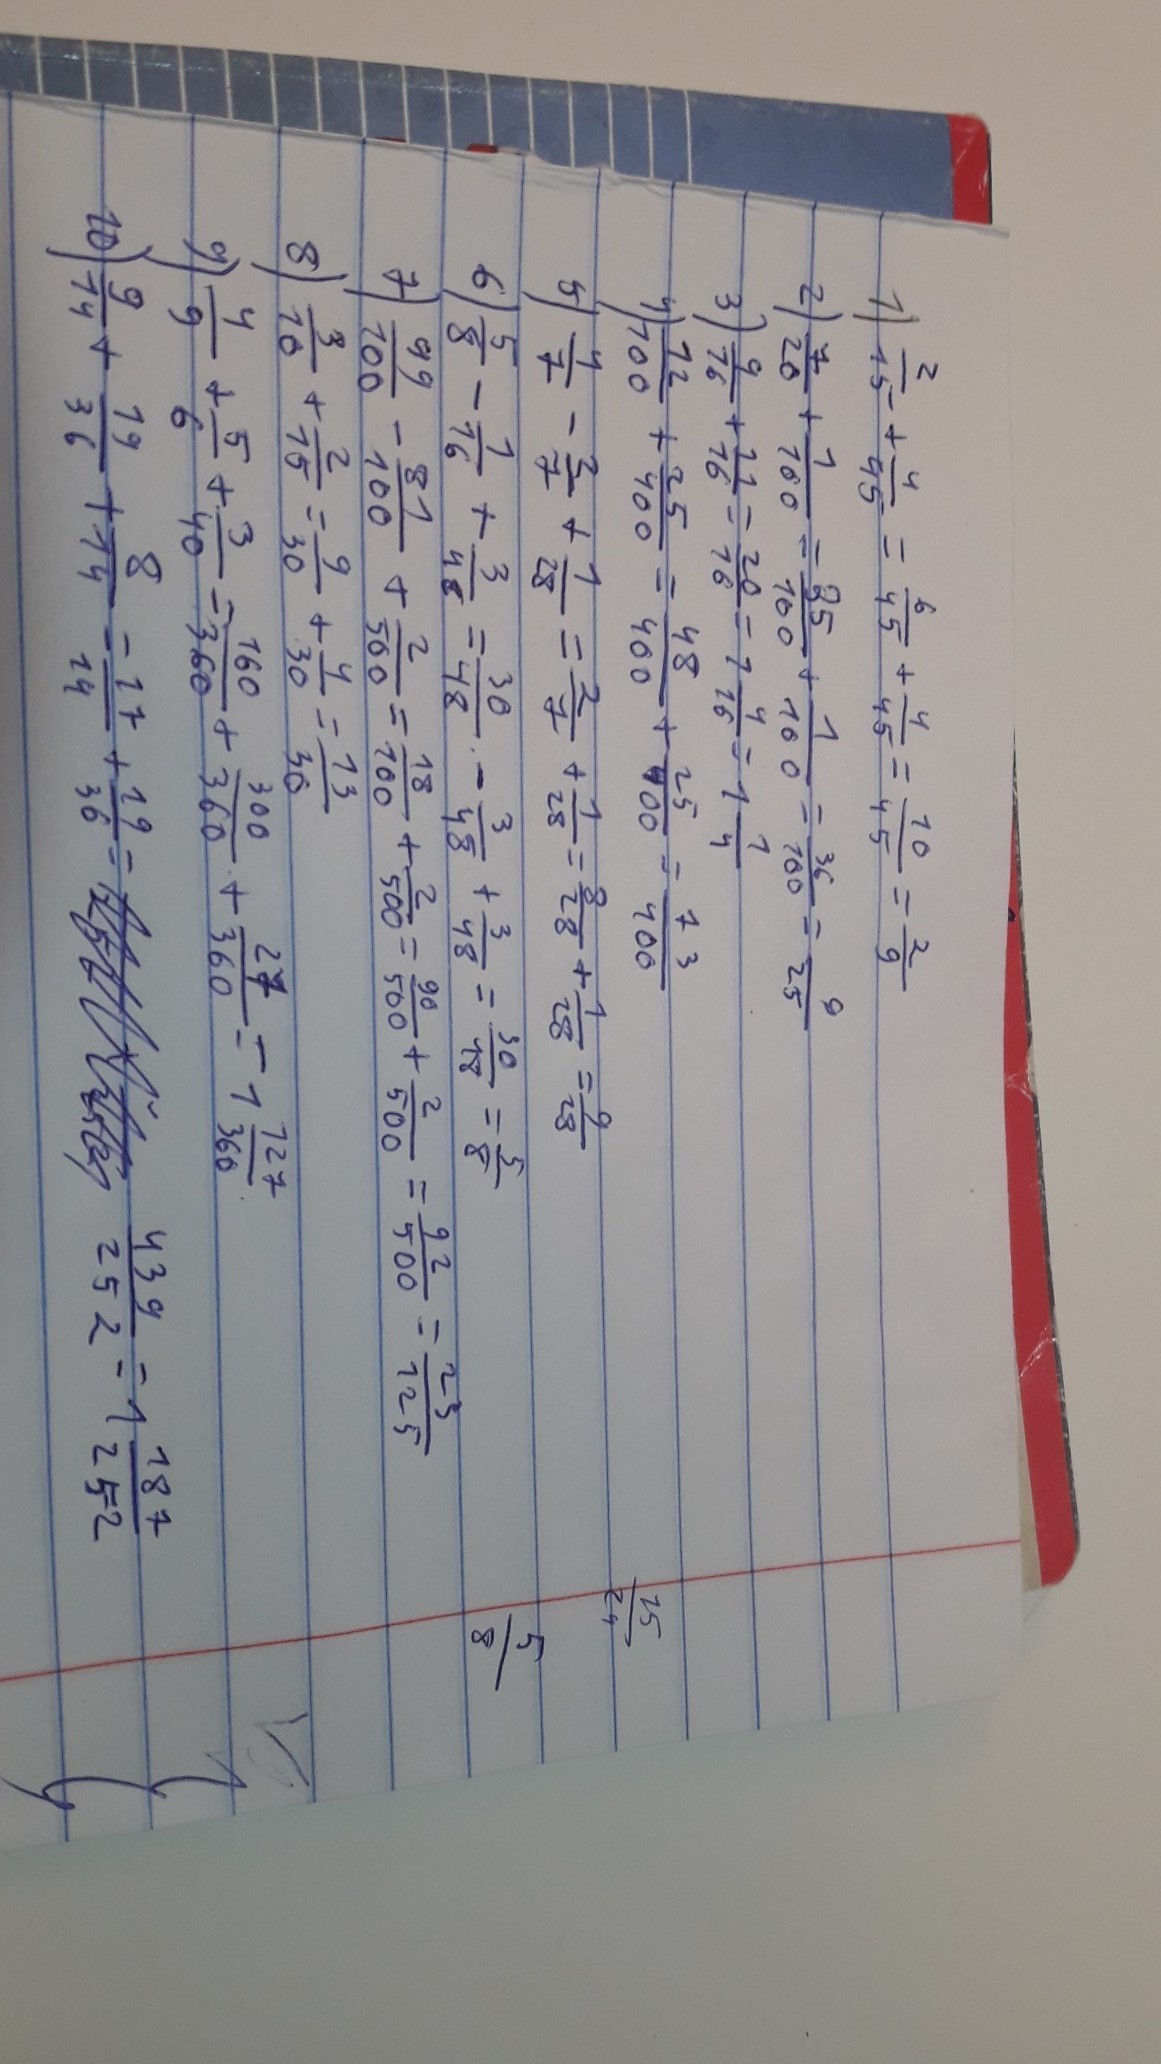 1) 2/15 + 4/45 = 6/45 + 4/45 = 10/45 = 2/9
2) 7/20 + 1/100 = 35/100 + 1/100 = 36/100 = 9/25
3) 9/16 + 11/16 = 20/16 = 1 4/16 = 1 1/4
4) 12/100 + 25/400 = 48/400 + 25/400 = 73/400
15/24
5) 4/7 - 2/7 + 1/28 = 2/7 + 1/28 = 8/28 + 1/28 = 9/28
6) 5/8 - 1/16 + 3/48 = 30/48 - 3/48 + 3/48 = 30/48 = 5/8
5/8
7) 99/100 - 81/100 + 2/500 = 18/100 + 2/500 = 90/500 + 2/500 = 92/500 = 23/125
8) 3/10 + 2/15 = 9/30 + 4/30 = 13/30
9) 4/9 + 5/6 + 3/40 = 160/360 + 300/360 + 27/360 = 1 127/360
10) 9/14 + 19/36 + 8/14 = 17/14 + 19/36 = 439/252 = 1 187/252